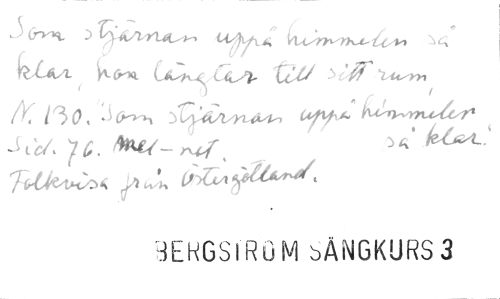 Som stjärnan uppå himmelen så
klar, hon längtar till sitt rum,
N. 130. "Som stjärnan uppå himmelen
så klar."
Sid. 76. Mel-not
Folkvisa från Östergötland.
BERGSTRÖM SÅNGKURS 3